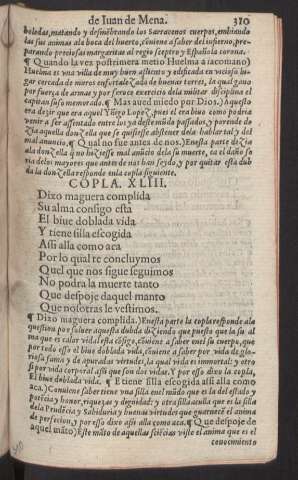 de Iuan de Mena. 310
boledas, matando y desmẽbrando los Sarracenos cuerpos, embiando
las sus animas ala boca del huerto, cõuiene a saber del infierno, pre-
parando preciosas margaritas al regio sceptro y Española corona.
¶ Quando la vez postrimera metio Huelma a sacomano)
Huelma es vna villa de muy buen assiento y edificada en vicioso lu
gar cercada de muros enfortalezada de buenas torres, la qual gano
por fuerça de armas y por feroce exercicio dela militar disciplina el
capitan suso memorado. ¶ Mas aued miedo por Dios.) A questo
era dezir que era aquel Yñigo LopeZ, pues el era biuo como podria
venir a ser assentado entre los ya deste mũdo passados, y porende de
zia aquella donZella que se quisiesse abstener dela hablar tal y del
mal anuncio. ¶ Qual no fue antes de nos.) Enesta parte deZia
ala donZella q̃ no hiziesse mal anũcio dela su muerte, ca el daño se
ria delos mayores que antes de nos han seydo, y por quitar esta dub
da la donZella responde enla copla siguiente.
COPLA. XLIII.
Dixo maguera complida
Su alma consigo esta
El biue doblada vida
Y tiene silla escogida
Assi alla como aca
Por lo qual te concluymos
Quel que nos sigue seguimos
No podra la muerte tanto
Que despoje daquel manto
Que nosotras le vestimos.
¶ Dixo maguera complida.) Enesta parte la copla responde ala
question por soluer aquesta dubda diziendo que puesto que la su al
ma que es calor vidal esta cõsigo, cõuiene a saber enel su cuerpo, que
por todo esso el biue doblada vida, cõuiene a saber por vida de glo-
riosa fama y de apuradas virtudes, la qual vida es inmortal: y otro
si por vida corporal assi que son dos vidas. Y por esso dixo la copla,
El biue doblada vida. ¶ E tiene silla escogida assi alla como
aca.) Conuiene saber tiene vna silla enel mũdo que es la del estado y
potẽcia y honor, riquezas y dignidad: y otra silla aculla que es la silla
dela Prudẽcia y Sabiduria y buenas virtudes que guarnece el anima
de perfecion, y por esso dixo assi alla como aca. ¶ Que despoje de
aquel mãto) Este mãto de aquellas sciẽcias viste el anima que es el
conocimiento